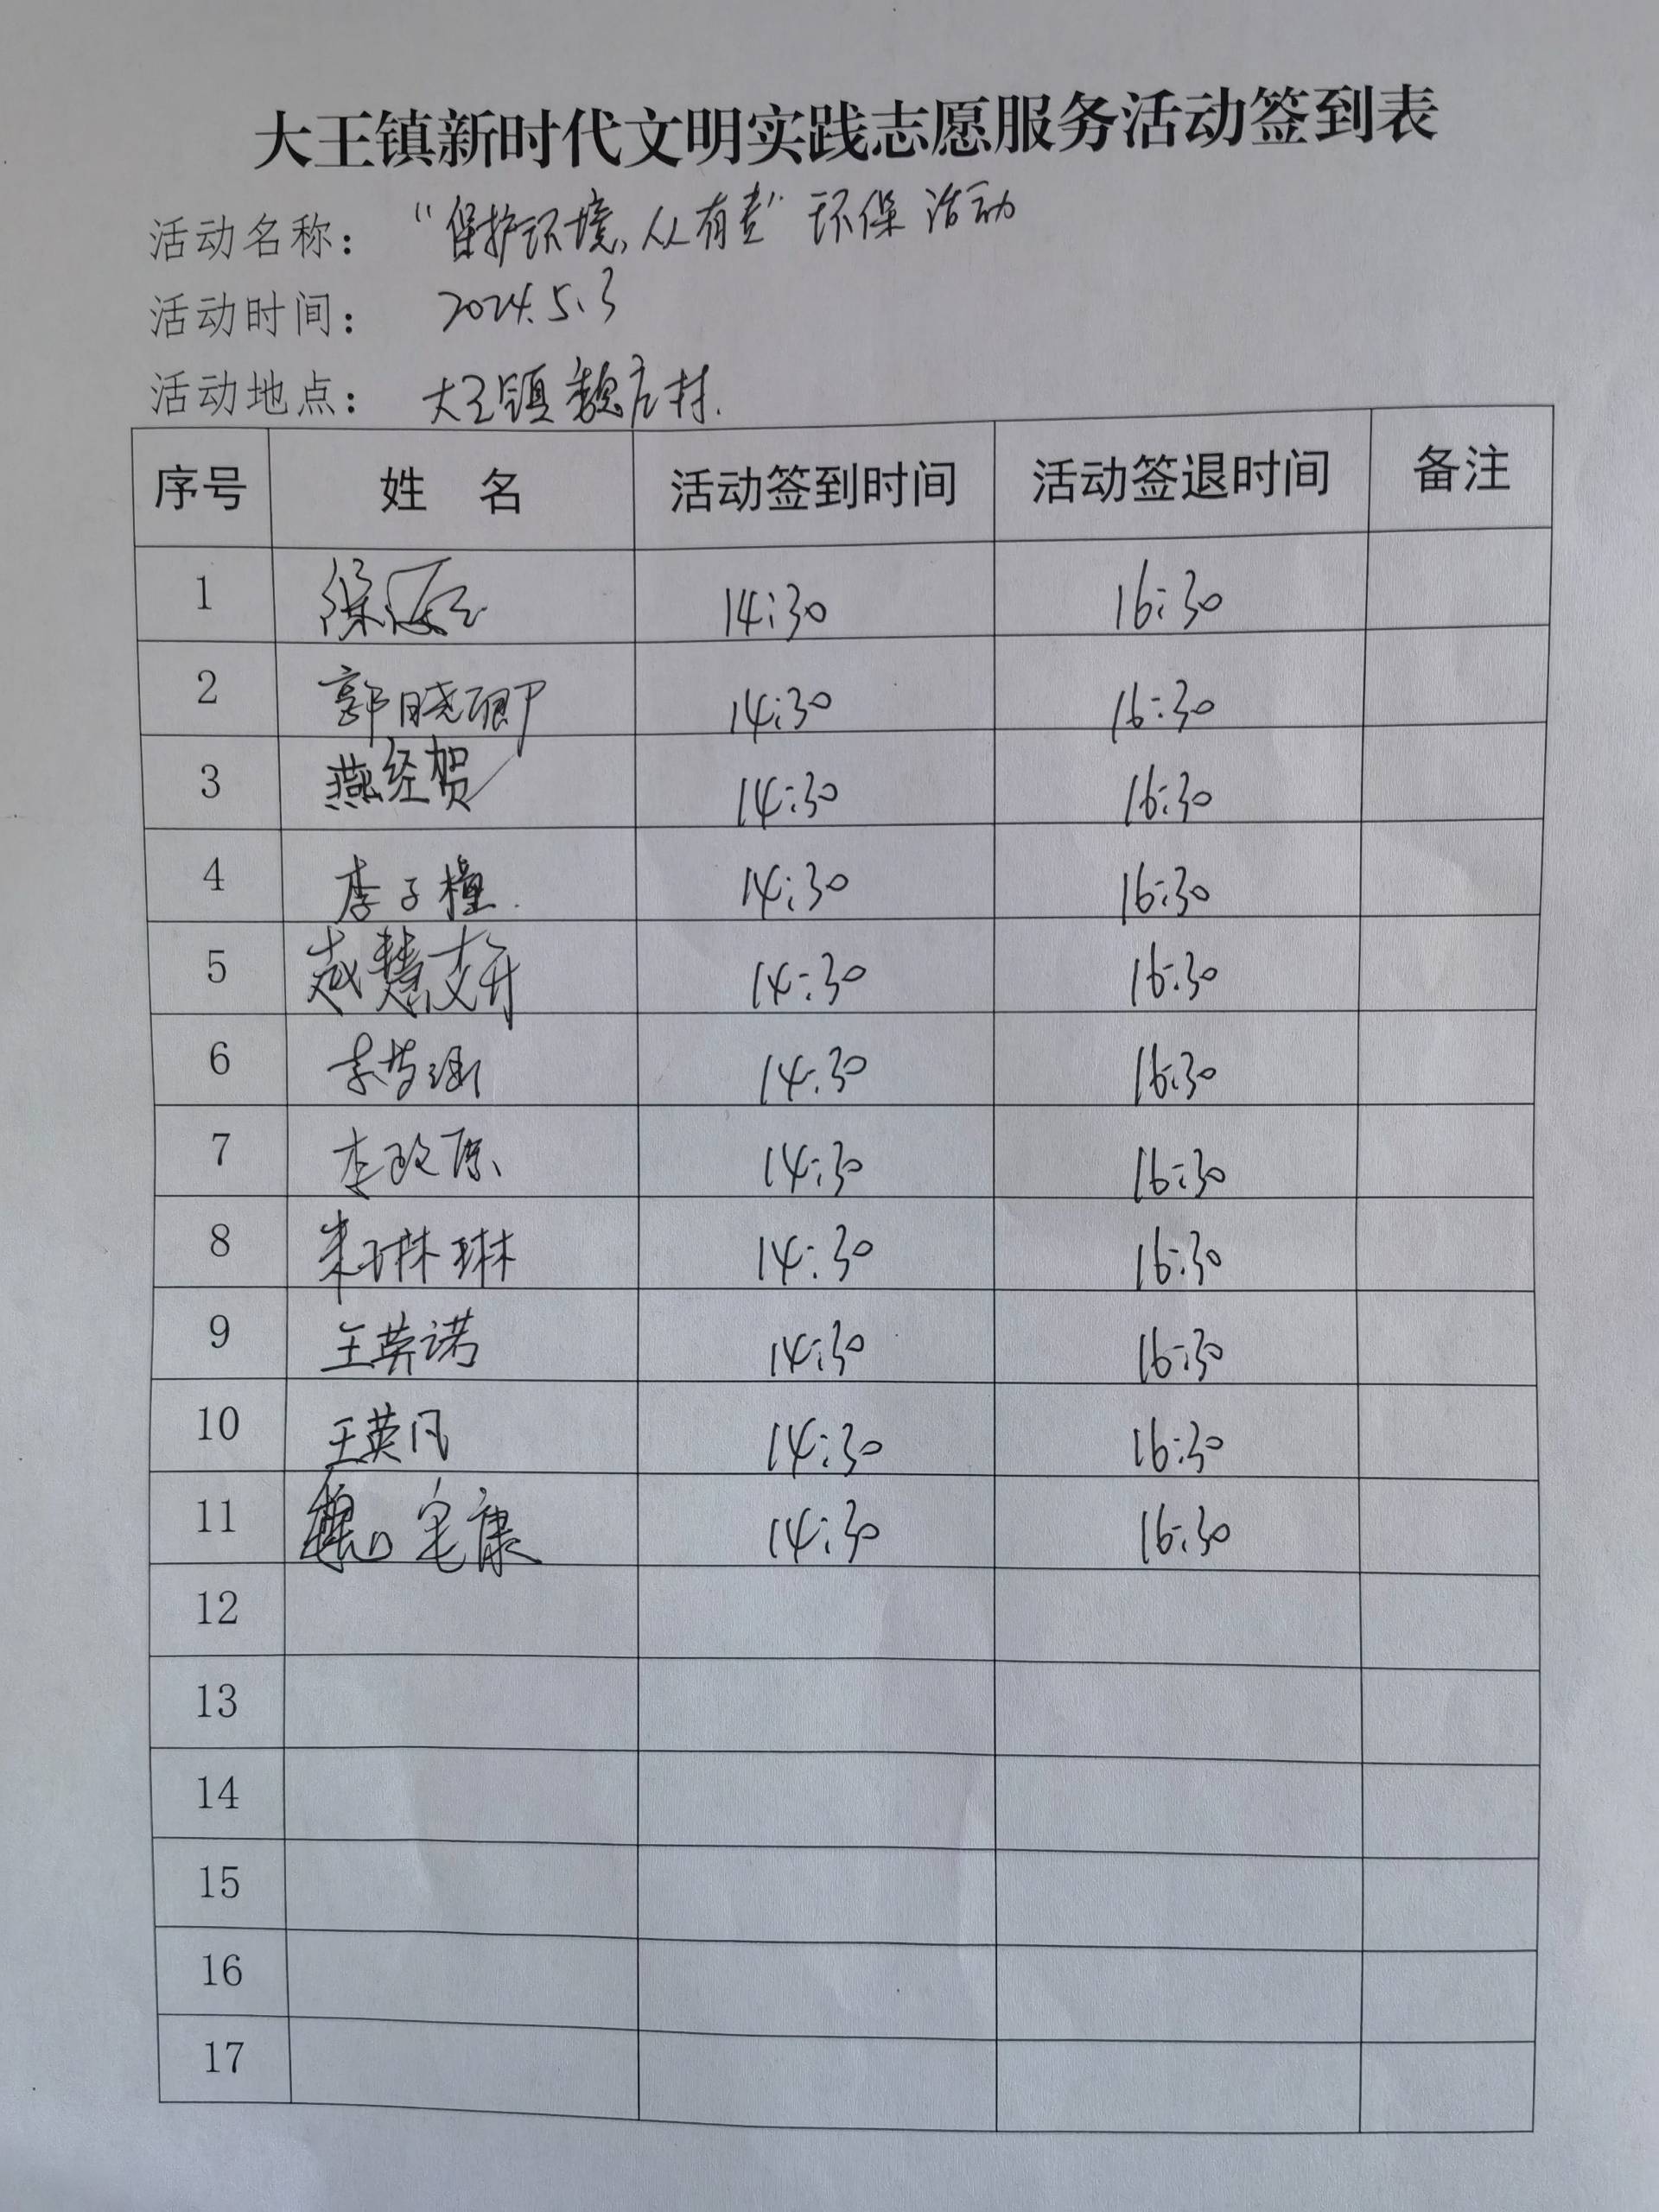 大王镇新时代文明实践志愿服务活动签到表
活动名称： “保护环境,人人有责” 环保活动
活动时间： 2024.5.3
活动地点： 大王镇魏庄村.
序号 姓 名 活动签到时间 活动签退时间 备注
1 徐 14:30 16:30
2 郭晓卿 14:30 16:30
3 燕经贺 14:30 16:30
4 李子橦 14:30 16:30
5 慧妍 14:30 16:30
6 李梦涵 14:30 16:30
7 李玟 14:30 16:30
8 朱琳琳 14:30 16:30
9 王英诺 14:30 16:30
10 王英凡 14:30 16:30
11 魏 康 14:30 16:30
12
13
14
15
16
17